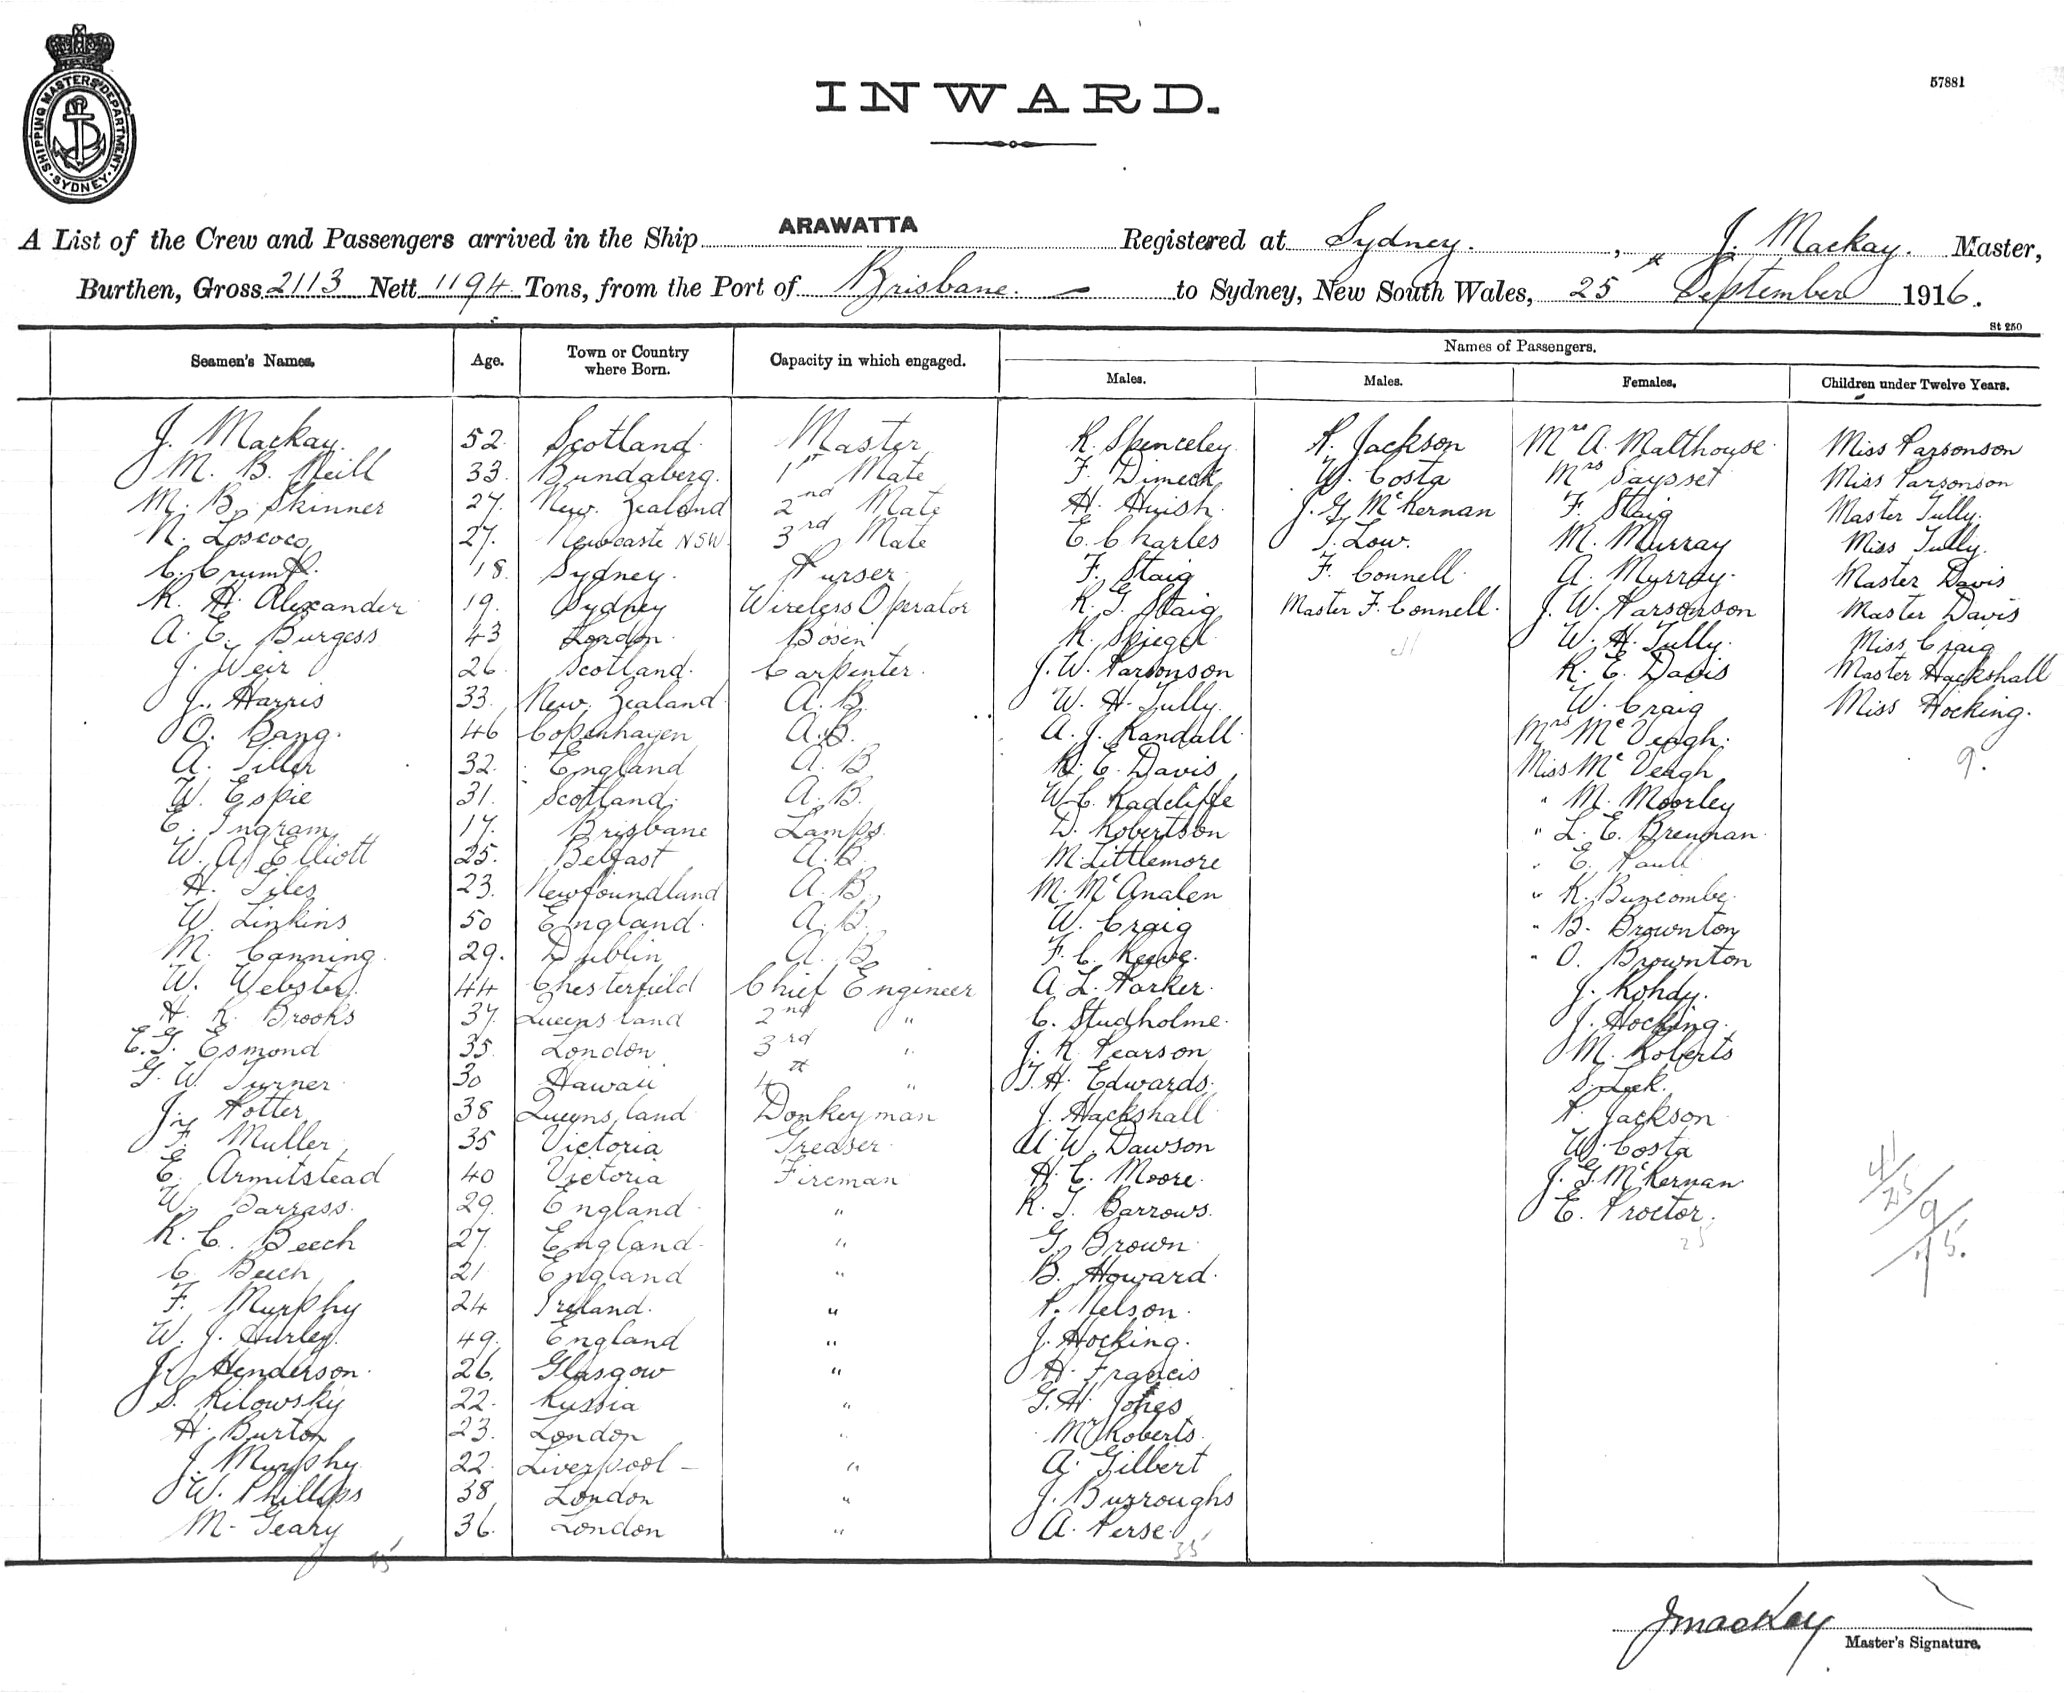 SHIPPING MASTERS DEPARTMENT
SYDNEY
57881
INWARD.
A List of the Crew and Passengers arrived in the Ship ARAWATTA Registered at Sydney. , J. Mackay. Master,
Burthen, Gross 2113 Nett 1194 Tons, from the Port of Brisbane. to Sydney, New South Wales, 25th September 1916.
St 250
Seamen's Names. Age. Town or Country where Born. Capacity in which engaged. Names of Passengers.
Males. Males. Females. Children under Twelve Years.
J. Mackay. 52. Scotland. Master R. Spenceley P. Jackson Mrs A. Malthouse. Miss Parsonson
M. B. Neill 33. Bundaberg. 1st Mate F. Dimeck W. Costa Mrs Saysset Miss Parsonson
M. B. Skinner 27. New. Zealand 2nd Mate H. Huish. J. G. McKernan F. Staig Master Tully.
N. Loscoco 27. Newcaste NSW. 3rd Mate E. Charles T. Low. M. Murray Miss Tully.
C. Crump. 18. Sydney. Purser F. Staig F. Connell. A. Murray. Master Davis
R. H. Alexander 19. Sydney Wireless Operator R. G. Staig Master F. Connell. J. W. Parsonson Master Davis
A. E. Burgess 43 London. Bosen R. Spiegel. 41 W. H. Tully. Miss Craig
J. Weir 26. Scotland. Carpenter. J. W. Parsonson R. E. Davis Master Hackshall
J. Harris 33. New. Zealand A. B. W. H. Tully. W. Craig Miss Hocking.
O. Bang. 46 Copenhagen A. B. A. J. Randall. Mrs McVeagh. 9.
A. Tiller 32. England A. B R. E. Davis Miss McVeagh
W. Espie 31. Scotland. A. B. W. C. Radcliffe " M. Moorley
E. Ingram 17. Brisbane Lamps. D. Robertson " L. E. Brennan.
W. A. Elliott 25. Belfast A. B. M Littlemore " E. Paull
H. Giles 23. Newfoundland A. B. M. McAnalen " K. Buncombe.
W. Linkins 50 England. A. B. W. Craig " B. Brownton
M. Canning. 29. Dublin A. B. F. C. Reeve. " O. Brownton
W. Webster. 44 Chesterfield Chief Engineer A. L. Parker. J. Rohdy.
H. R. Brooks 37. Queensland 2nd " C. Studholme. J. Hocking.
E. G. Esmond 35. London 3rd " J. R. Pearson M. Roberts
G. W. Turner. 30 Hawaii 4th " T. H. Edwards. S. Leek.
J. Potter 38 Queensland Donkeyman J. Hackshall P. Jackson
F. Muller 35 Victoria Greaser. A. W. Dawson W. Costa
E. Armitstead 40 Victoria Fireman H. C. Moore. J. G. McKernan 41/25/9
W. Barrass. 29. England " R. T. Barrows. E. Proctor. 75.
R. C. Beech 27. England. " G. Brown 25
C. Beech 21 England " B. Howard.
F. Murphy 24 Ireland. " P. Nelson.
W. J. Hurley. 49. England " J. Hocking.
J. Henderson. 26. Glasgow " H. Francis
S. Kilowsky 22. Russia " G. H. Jones
H. Burton 23. London " Mr Roberts
J. Murphy. 22. Liverpool – " A. Gilbert
W. Phillips 38 London " J. Burroughs
M. Geary 36. London " A. Perse.
35 35
J MacKay
Master's Signature.